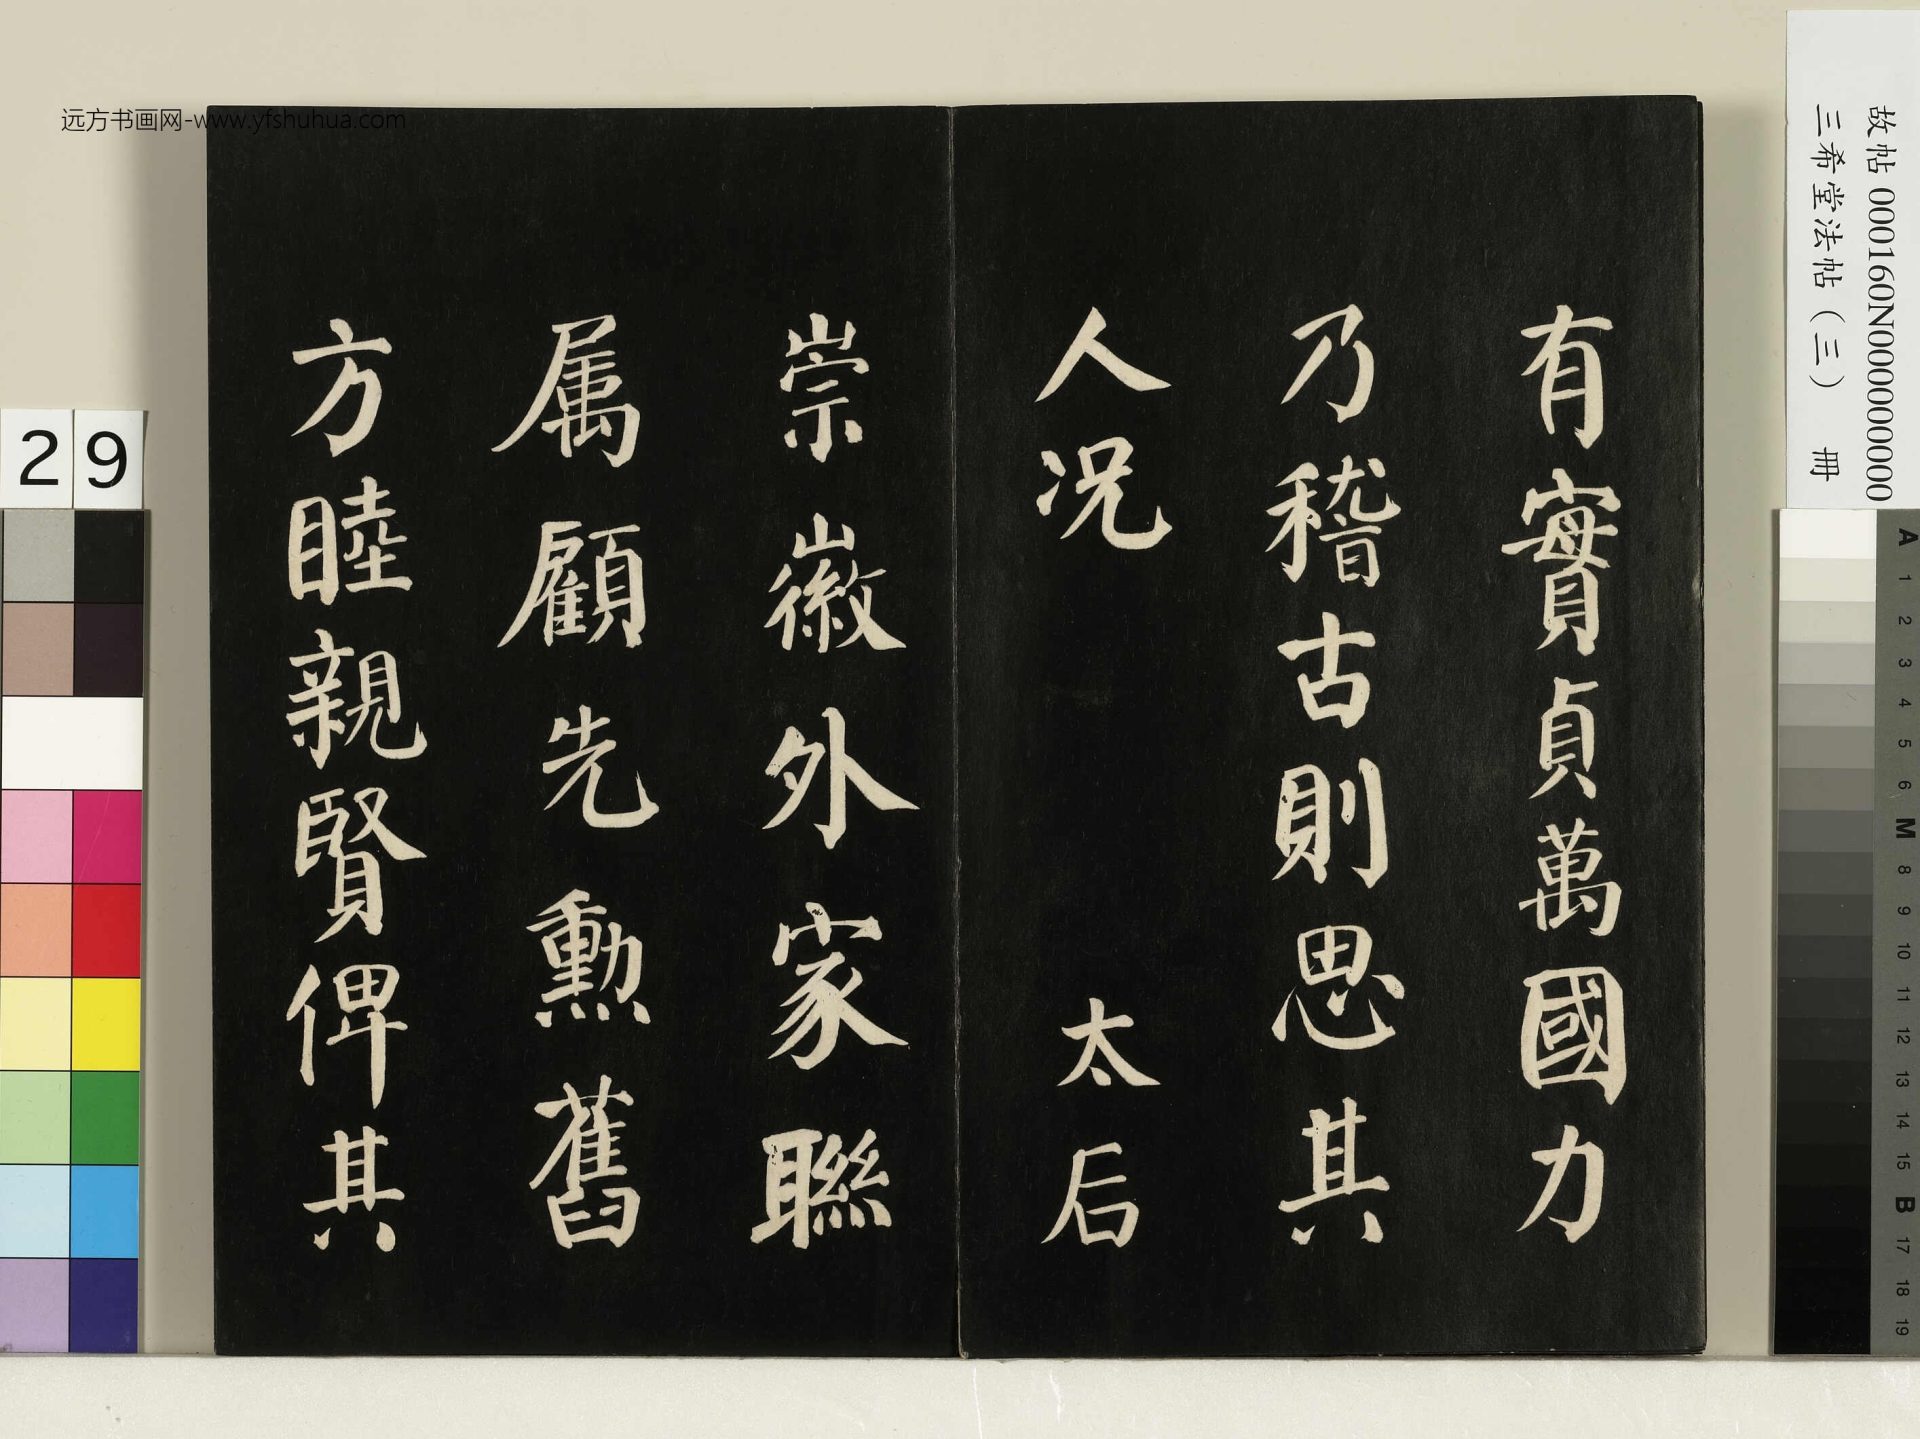 有實貞萬國力
乃稽古則思其
人况 太后
崇徽外家聯
属顧先勲舊
方睦親賢俾其
故帖 000160N000000000
三希堂法帖（三） 冊
远方书画网-www.yfshuhua.com
29
A 1 2 3 4 5 6 M 8 9 10 11 12 13 14 15 B 17 18 19